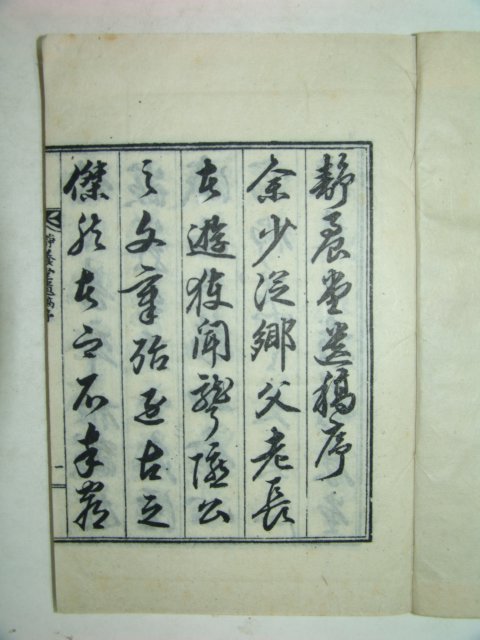 靜養堂遺稿序
余少從鄉父老長
者遊獲聞聾隱公
之文章殆近古之
傑然者而不幸
靜養堂遺稿序
一